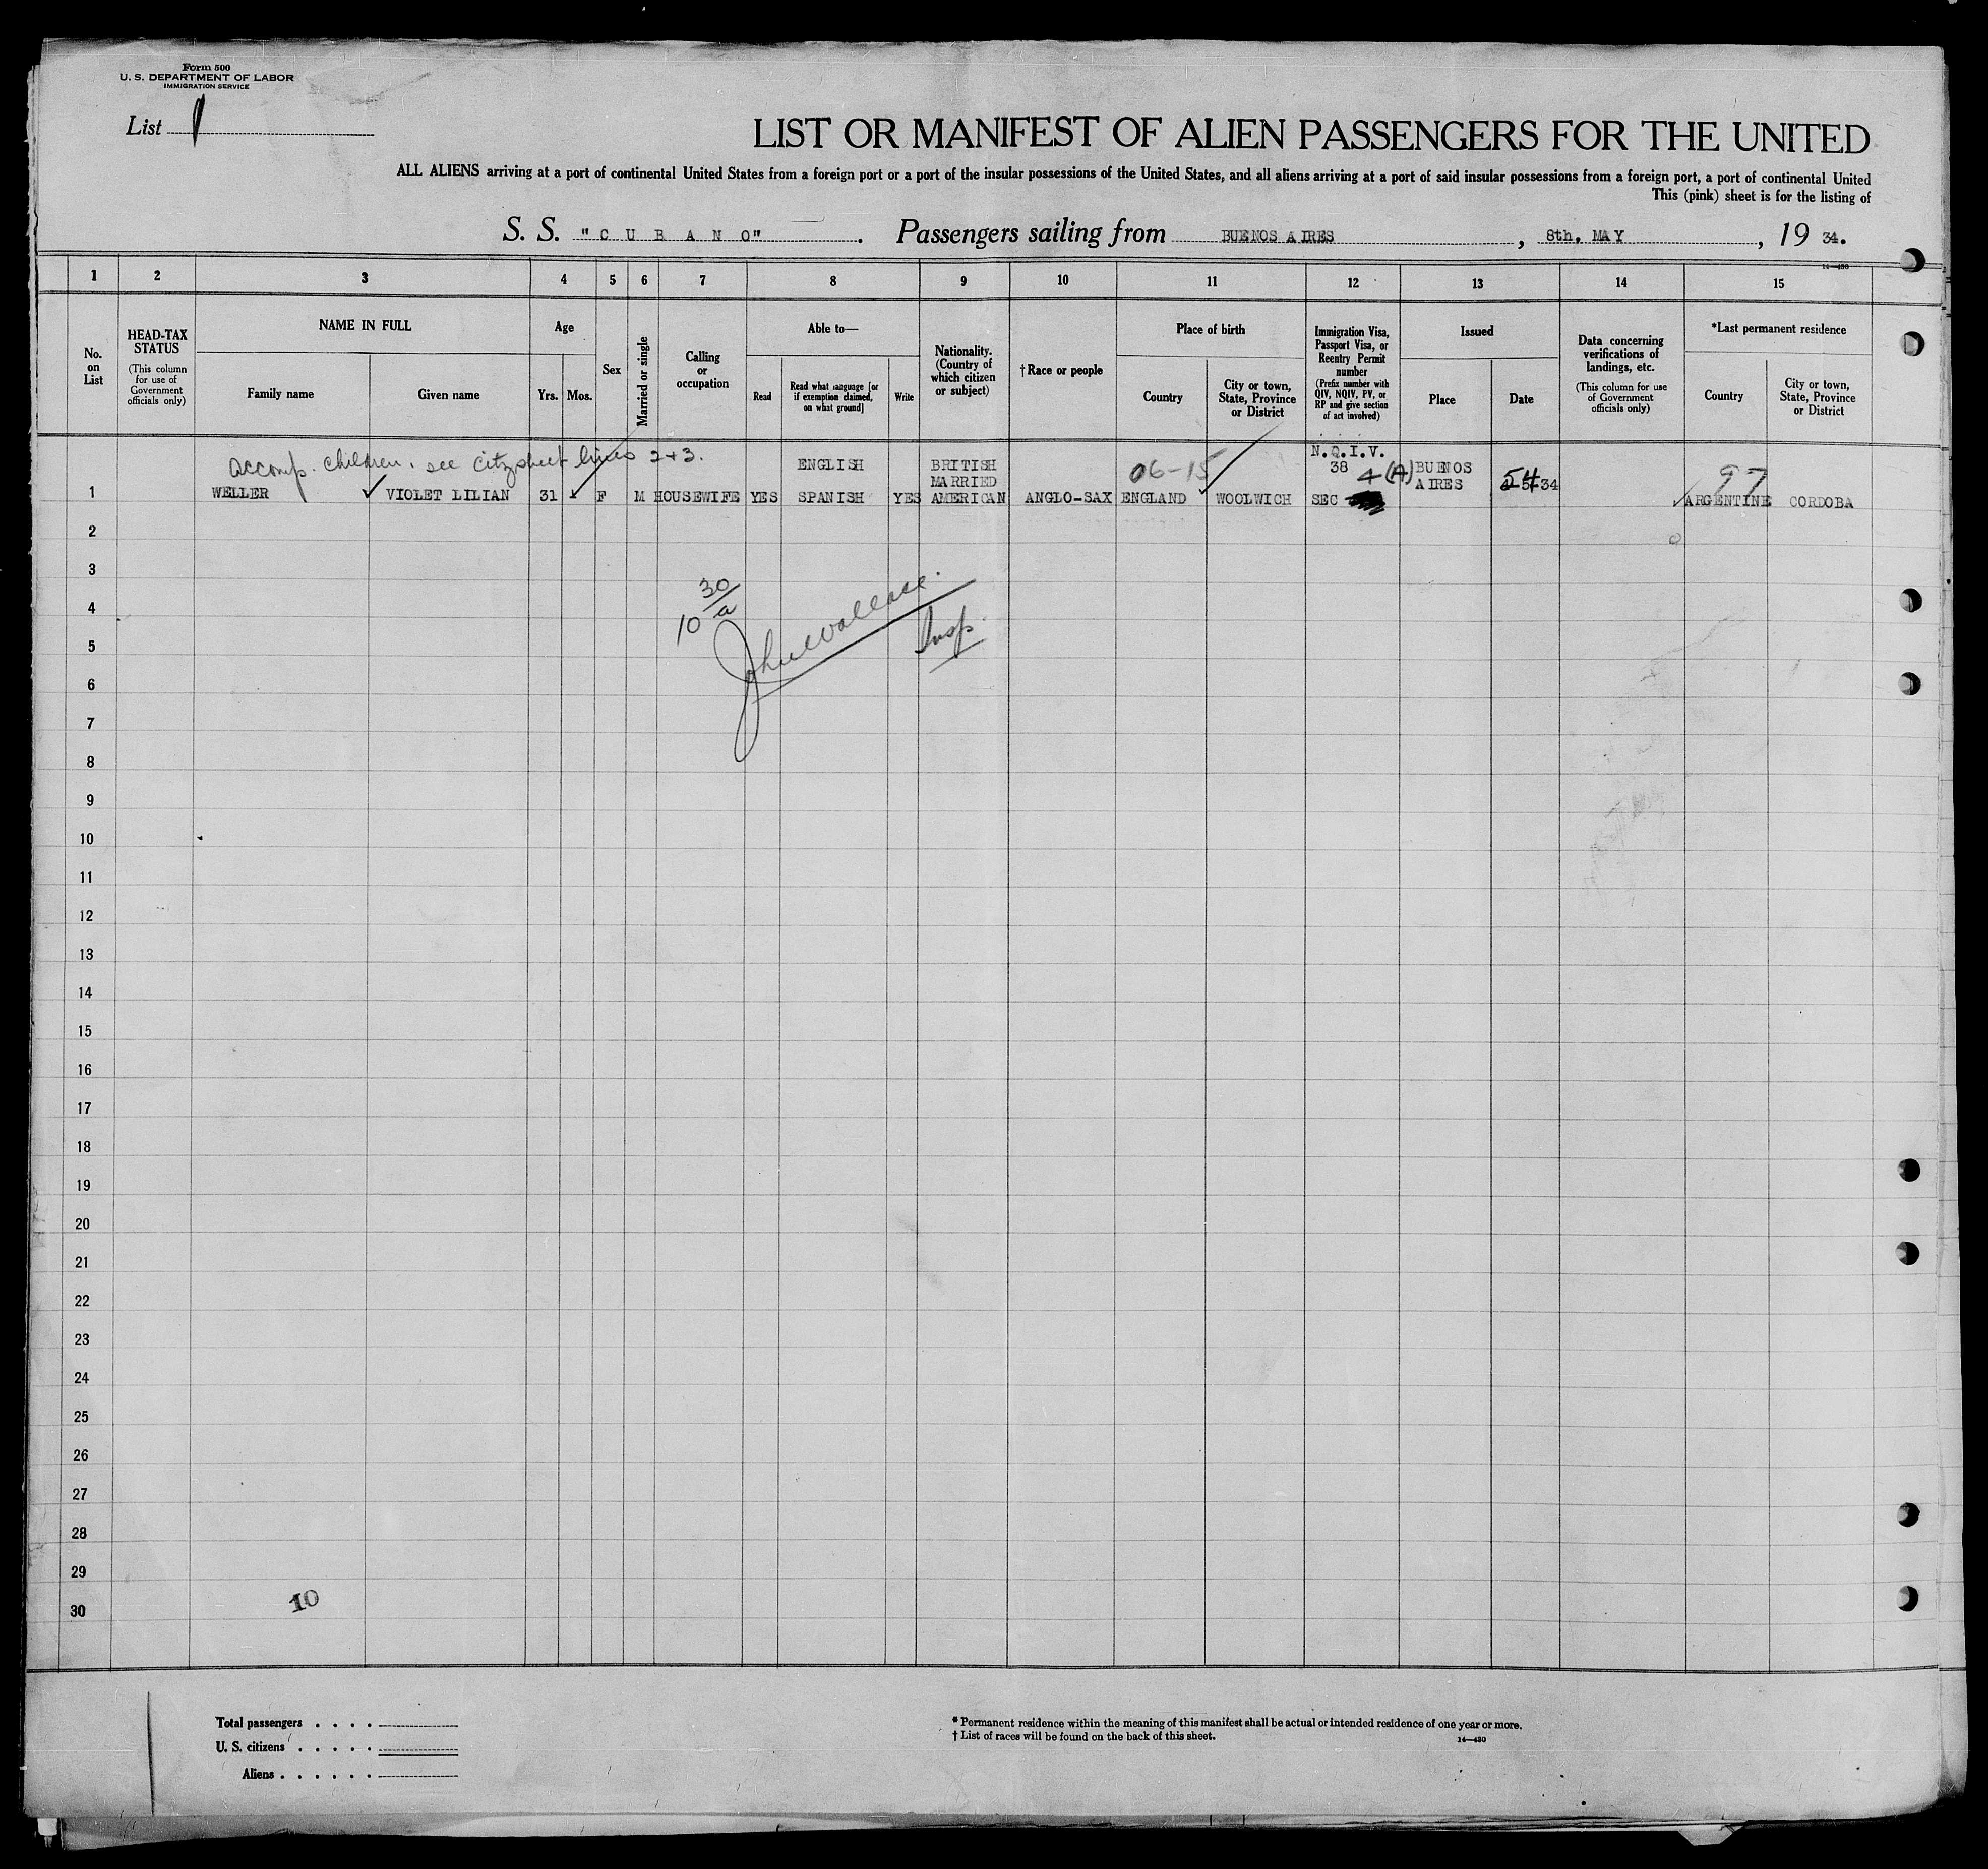 Form 500
U. S. DEPARTMENT OF LABOR
IMMIGRATION SERVICE
List 1
LIST OR MANIFEST OF ALIEN PASSENGERS FOR THE UNITED
ALL ALIENS arriving at a port of continental United States from a foreign port or a port of the insular possessions of the United States, and all aliens arriving at a port of said insular possessions from a foreign port, a port of continental United
This (pink) sheet is for the listing of
S. S. "C U B A N O". Passengers sailing from BUENOS AIRES, 8th. MAY, 19 34.
14—430
1 2 3 4 5 6 7 8 9 10 11 12 13 14 15
No. on List
HEAD-TAX STATUS
(This column for use of Government officials only)
NAME IN FULL
Family name
Given name
Age
Yrs.
Mos.
Sex
Married or single
Calling or occupation
Able to—
Read
Read what language [or if exemption claimed, on what ground]
Write
Nationality. (Country of which citizen or subject)
†Race or people
Place of birth
Country
City or town, State, Province or District
Immigration Visa, Passport Visa, or Reentry Permit number
(Prefix number with QIV, NQIV, PV, or RP and give section of act involved)
Issued
Place
Date
Data concerning verifications of landings, etc.
(This column for use of Government officials only)
*Last permanent residence
Country
City or town, State, Province or District
accomp. children. see citz sheet lines 2+3.
ENGLISH BRITISH 06-15 N.Q.I.V. BUENOS 97
MARRIED 38 4(A) AIRES 34
1 WELLER VIOLET LILIAN 31 F M HOUSEWIFE YES SPANISH YES AMERICAN ANGLO-SAX ENGLAND WOOLWICH SEC ARGENTINE CORDOBA
2
3
10 30/a
4
John Wallace.
Insp.
5
6
7
8
9
10
11
12
13
14
15
16
17
18
19
20
21
22
23
24
25
26
27
28
29
30
10
Total passengers . . . .
U. S. citizens . . . . .
Aliens . . . . . .
* Permanent residence within the meaning of this manifest shall be actual or intended residence of one year or more.
† List of races will be found on the back of this sheet.
14—430